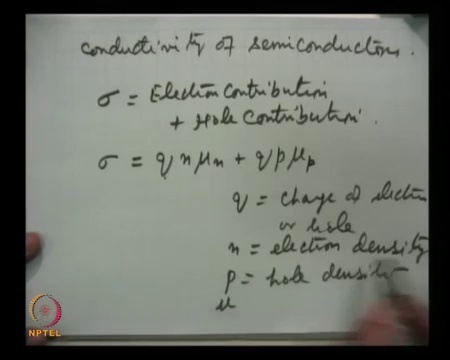 conductivity of semiconductors.
σ = Electron Contribution
+ Hole Contribution.
σ = q n μn + q p μp
q = charge of electron
or hole
n = electron density
p = hole density
μ
NPTEL